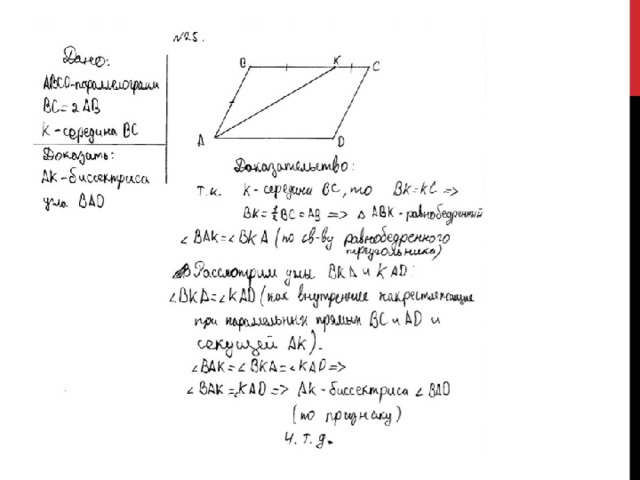 №25.
Дано:
ABCD-параллелограмм
BC=2AB
K-середина BC
Доказать:
AK-биссектриса
угла BAD
B K C
A D
Доказательство:
т.к. K-середина BC, то BK=KC =>
BK=½BC=AB => △ABK-равнобедренный
∠BAK=∠BKA (по св-ву равнобедренного
треугольника)
Рассмотрим углы BKA и KAD:
∠BKA=∠KAD (как внутренние накрестлежащие
при параллельных прямых BC и AD и
секущей AK).
∠BAK=∠BKA=∠KAD =>
∠BAK=∠KAD => AK-биссектриса ∠BAD
(по признаку)
Ч.т.д.